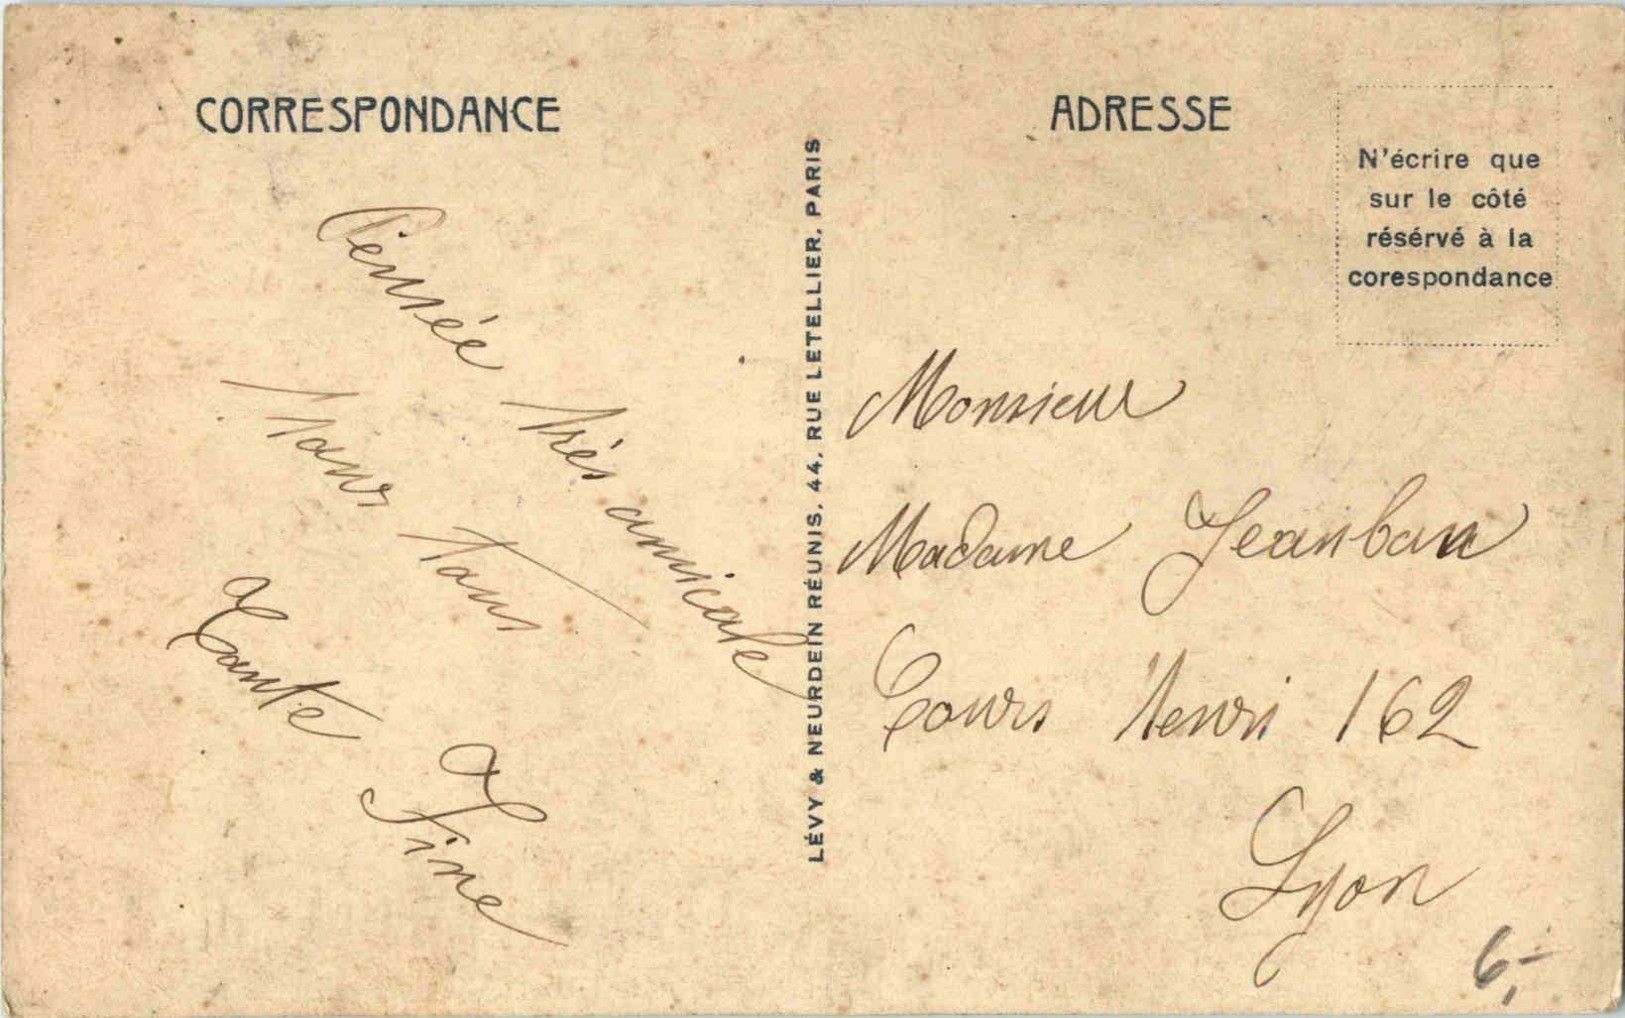 CORRESPONDANCE
Pensée très amicale
pour tous
Tante Fine
LÉVY & NEURDEIN RÉUNIS, 44, RUE LETELLIER, PARIS
ADRESSE
N'écrire que
sur le côté
résérvé à la
corespondance
Monsieur
Madame Jeanban
Cours Henri 162
Lyon
6,-